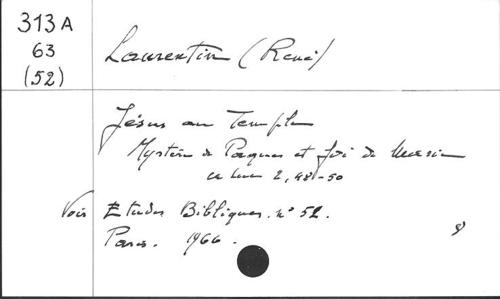 313 A
63
(52)
Laurentin (René)
Jésus au Temple
Mystère de Paques et foi de Marie
en Luc 2, 48-50
Voir Etudes Bibliques. n° 52.
Paris. 1966.